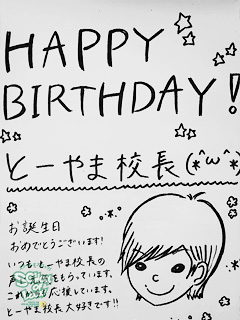 HAPPY
BIRTHDAY!
とーやま校長(*^ω^*)
お誕生日
おめでとうございます!
いつもとーやま校長の
声に元気をもらっています。
これからも応援しています。
とーやま校長大好きです!!